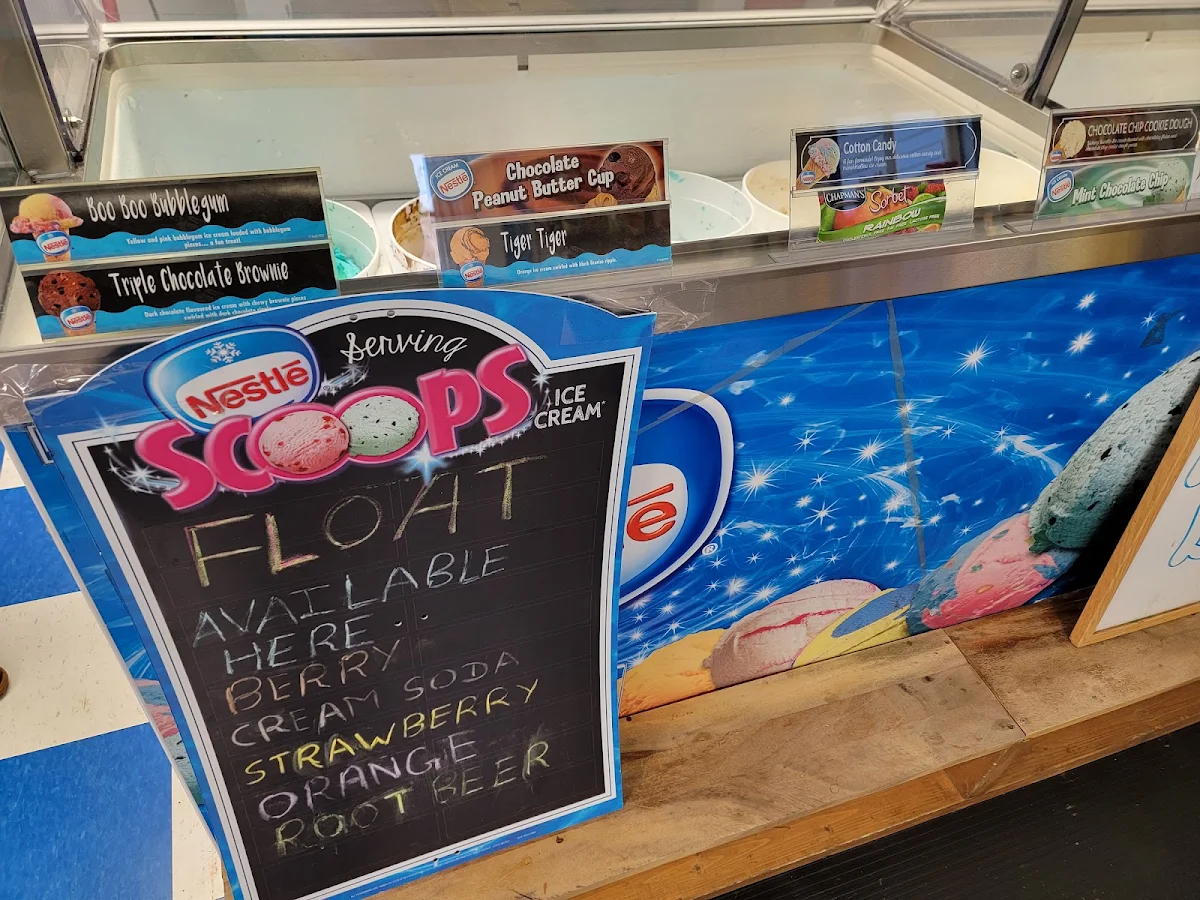 Boo Boo Bubblegum
Yellow and pink bubblegum ice cream loaded with bubblegum
pieces.... a fun treat!
Nestlé
Triple Chocolate Brownie
Dark chocolate flavoured ice cream with chewy brownie pieces
swirled with dark chocolate
Nestlé
ICE CREAM
Nestlé
Chocolate
Peanut Butter Cup
Tiger Tiger
Orange ice cream swirled with black licorice ripple.
Nestlé
Cotton Candy
CHAPMAN'S
Sorbet
RAINBOW
CHOCOLATE CHIP COOKIE DOUGH
Nestlé
Mint Chocolate Chip
Nestlé
Serving
SCOOPS
ICE
CREAM
FLOAT
AVAILABLE
HERE..
BERRY
CREAM SODA
STRAWBERRY
ORANGE
ROOT BEER
é
®